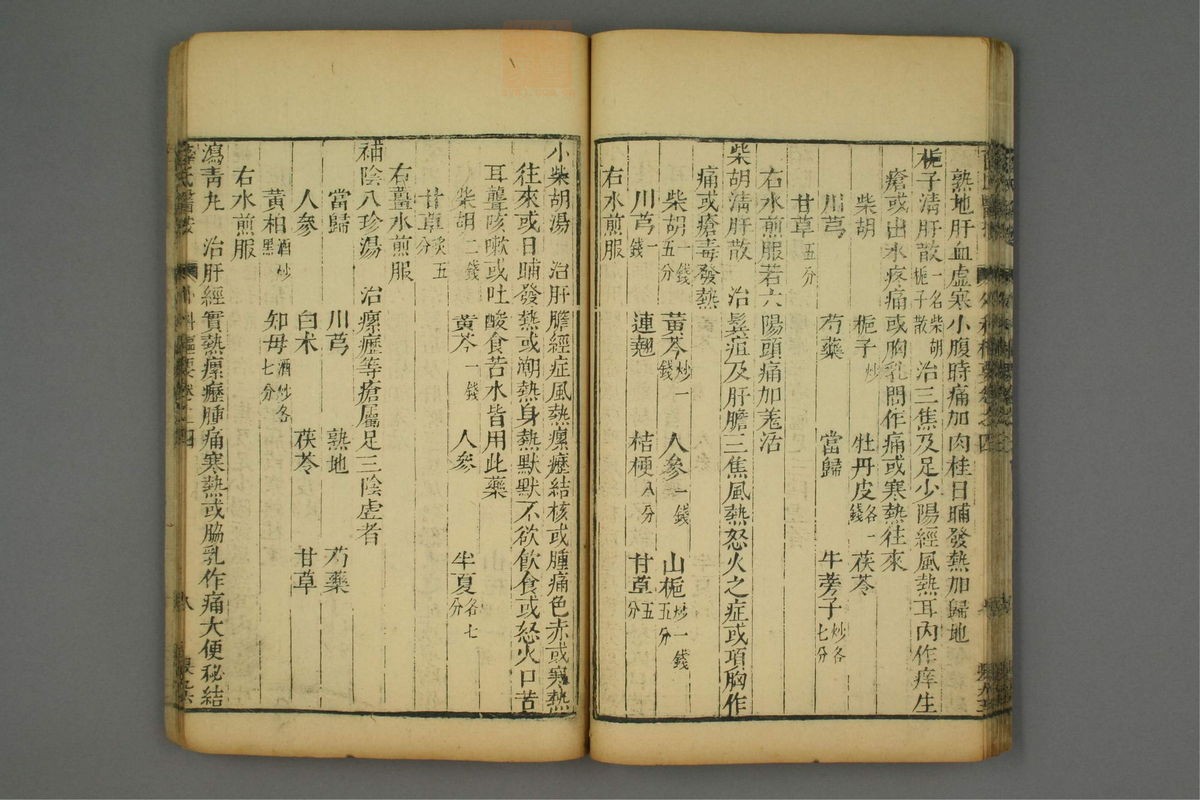 熟地肝血虛寒小腹時痛加肉桂日晡發熱加歸地
梔子淸肝散一名柴胡梔子散 治三焦及足少陽經風熱耳內作痒生
瘡或出水疼痛或胸乳間作痛或寒熱往來
柴胡 梔子炒 牡丹皮各一錢 茯苓
川芎 芍藥 當歸 牛蒡子炒各七分
甘草五分
右水煎服若六陽頭痛加羗活
柴胡淸肝散 治鬂疽及肝膽三焦風熱怒火之症或項胸作
痛或瘡毒發熱
柴胡一錢五分 黃芩炒一錢 人參一錢 山梔炒一錢五分
川芎一錢 連翹 桔梗八分 甘草五分
右水煎服
小柴胡湯 治肝膽經症風熱瘰癧結核或腫痛色赤或寒熱
往來或日晡發熱或潮熱身熱默默不欲飮食或怒火口苦
耳聾咳嗽或吐酸食苦水皆用此藥
柴胡二錢 黃芩一錢 人參 半夏各七分
甘草炙五分
右薑水煎服
補陰八珍湯 治瘰癧等瘡屬足三陰虛者
當歸 川芎 熟地 芍藥
人參 白朮 茯苓 甘草
黃柏酒炒黑 知母酒炒各七分
右水煎服
瀉靑丸 治肝經實熱瘰癧腫痛寒熱或脇乳作痛大便秘結
薛氏醫按 外科樞要卷之四 八